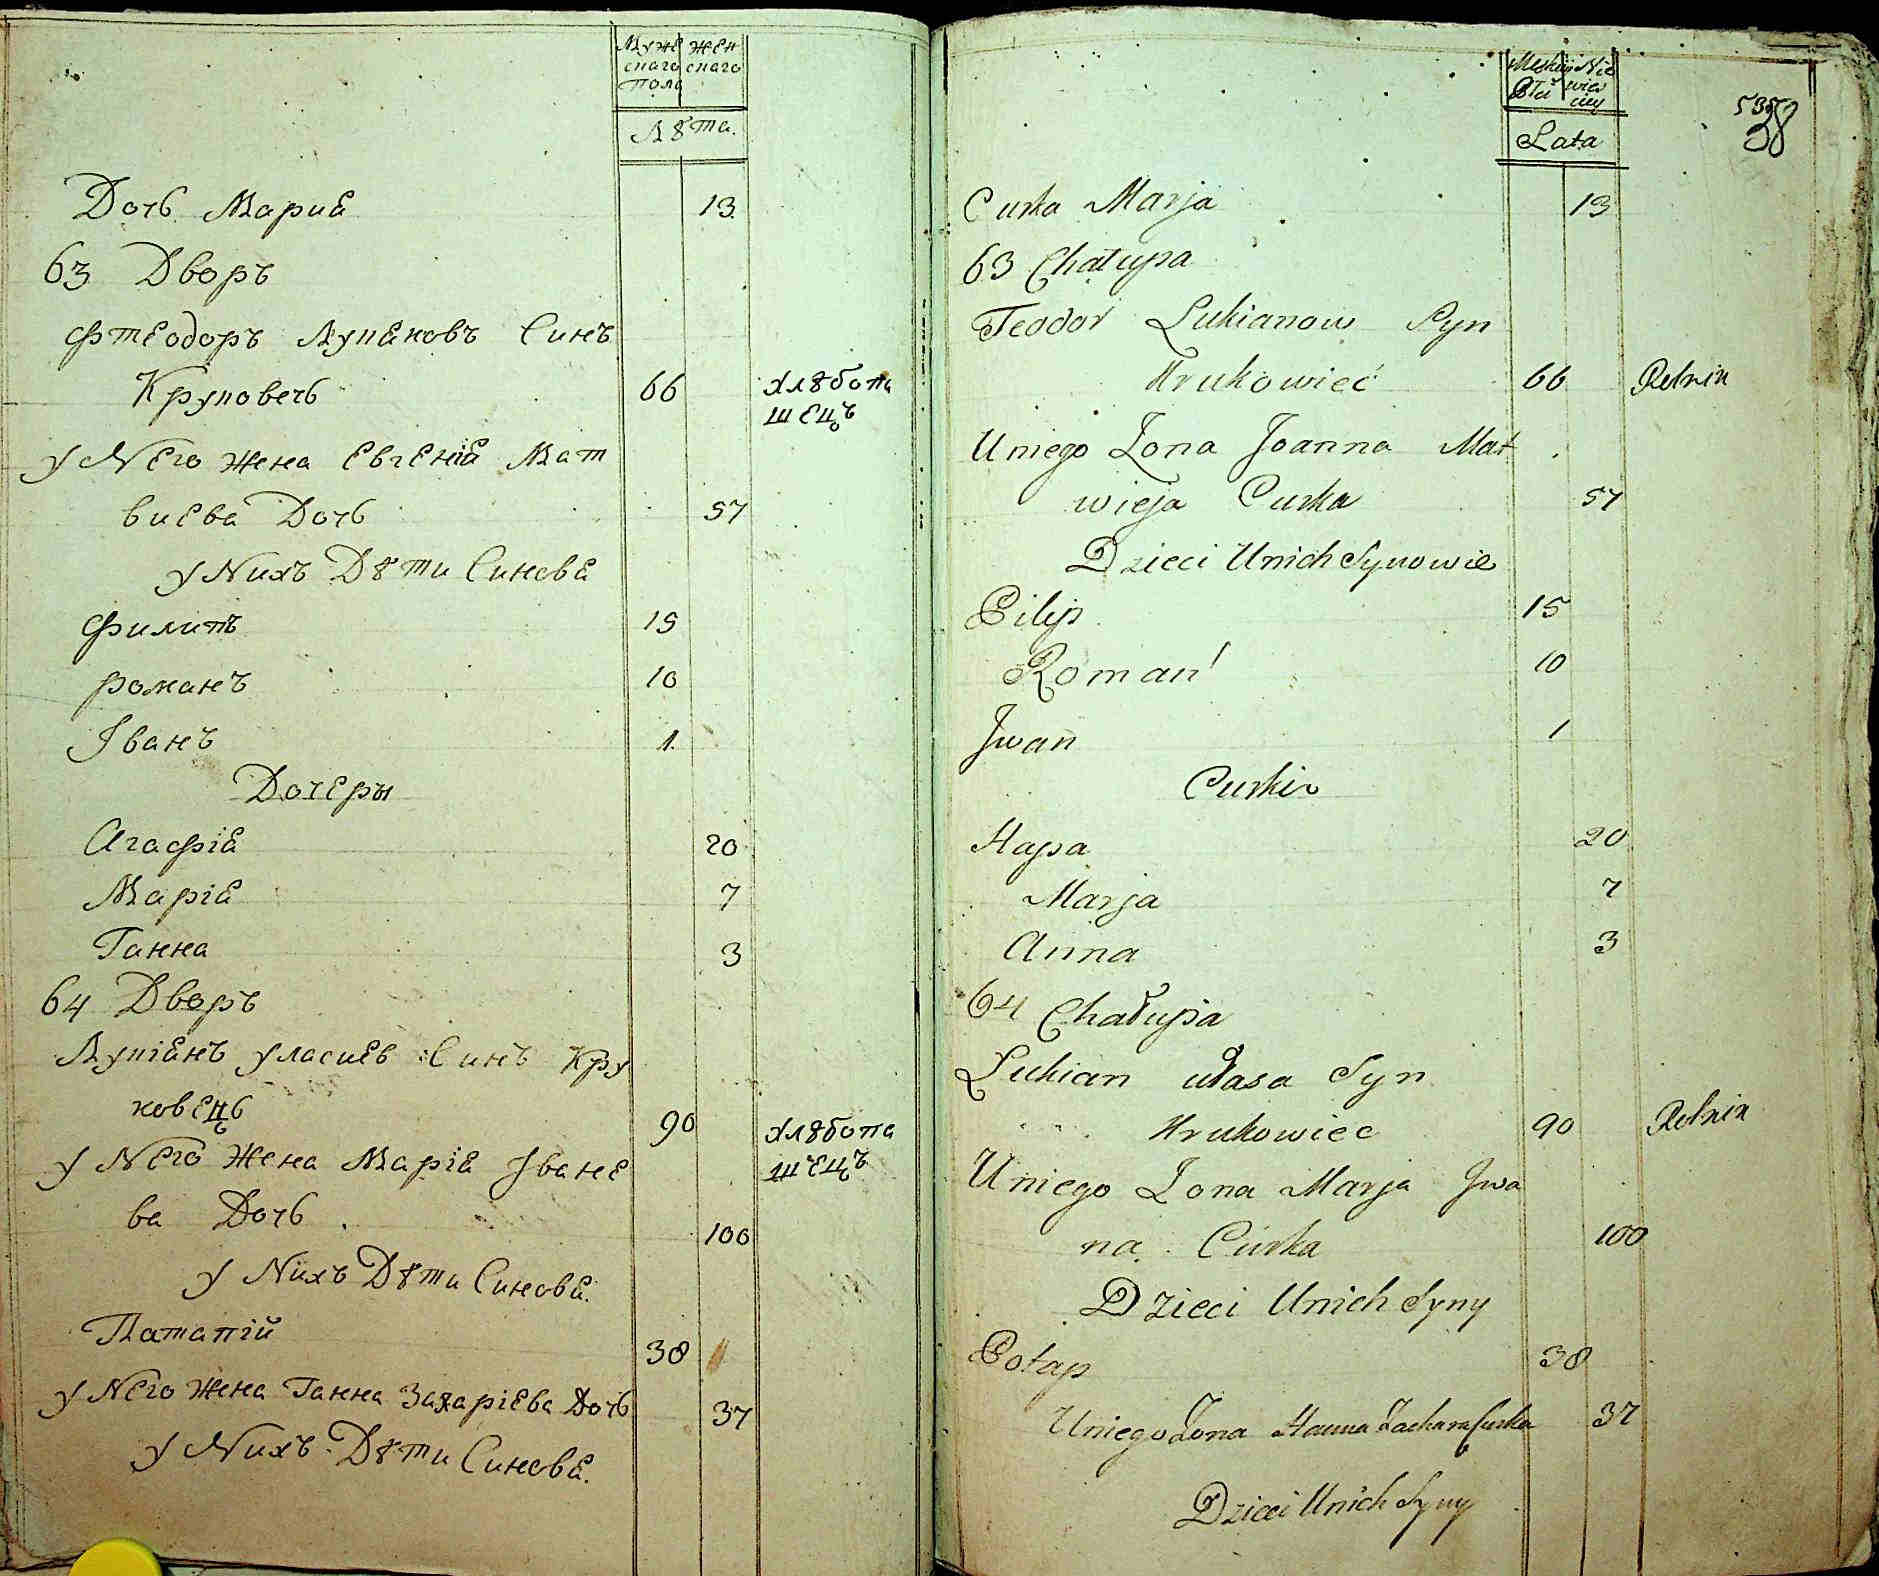 Муже жен
скаго скаго
пола
Лѣта.
Дочь Мариѣ 13
63 Дворъ
Фтеодоръ Лукѣновъ Синъ
Круковечь 66 хлѣбопа
шецъ
у Него жена Евгеніѣ Мат
виева Дочь 57
у Нихъ Дѣти Синовѣ
Филипъ 15
романъ 10
Іванъ 1.
Дочеры
Агафіѣ 20
Маріѣ 7
Ганна 3
64 Дворъ
Лукіѣнъ уласиев Синъ Кру
ковець 90 хлѣбопа
шецъ
у Него Жена Маріѣ Іване
ва Дочь 100
у Нихъ Дѣти Синовѣ.
Патапій 38
у Него жена Ганна Захаріева Дочь 37
у Нихъ Дѣти Синовѣ.
Lata
38
Curka Marja 13
63 Chałupa
Teodor Lukianow Syn
Krukowieć 66 Rolnik
Uniego Zona Joanna Mat
wieja Curka 57
Dzieci Unich Synowie
Pilip 15
Romań 10
Jwan 1
Curkie
Hapa 20
Marja 7
Anna 3
64 Chałupa
Lukian ułasa Syn
Krukowiec 90 Rolnik
Uniego Zona Marja Jwa
na Curka 100
Dzieci Unich Syny
Potap 38
Uniego Zona Hanna Zachara Curka 37
Dzieci Unich Syny